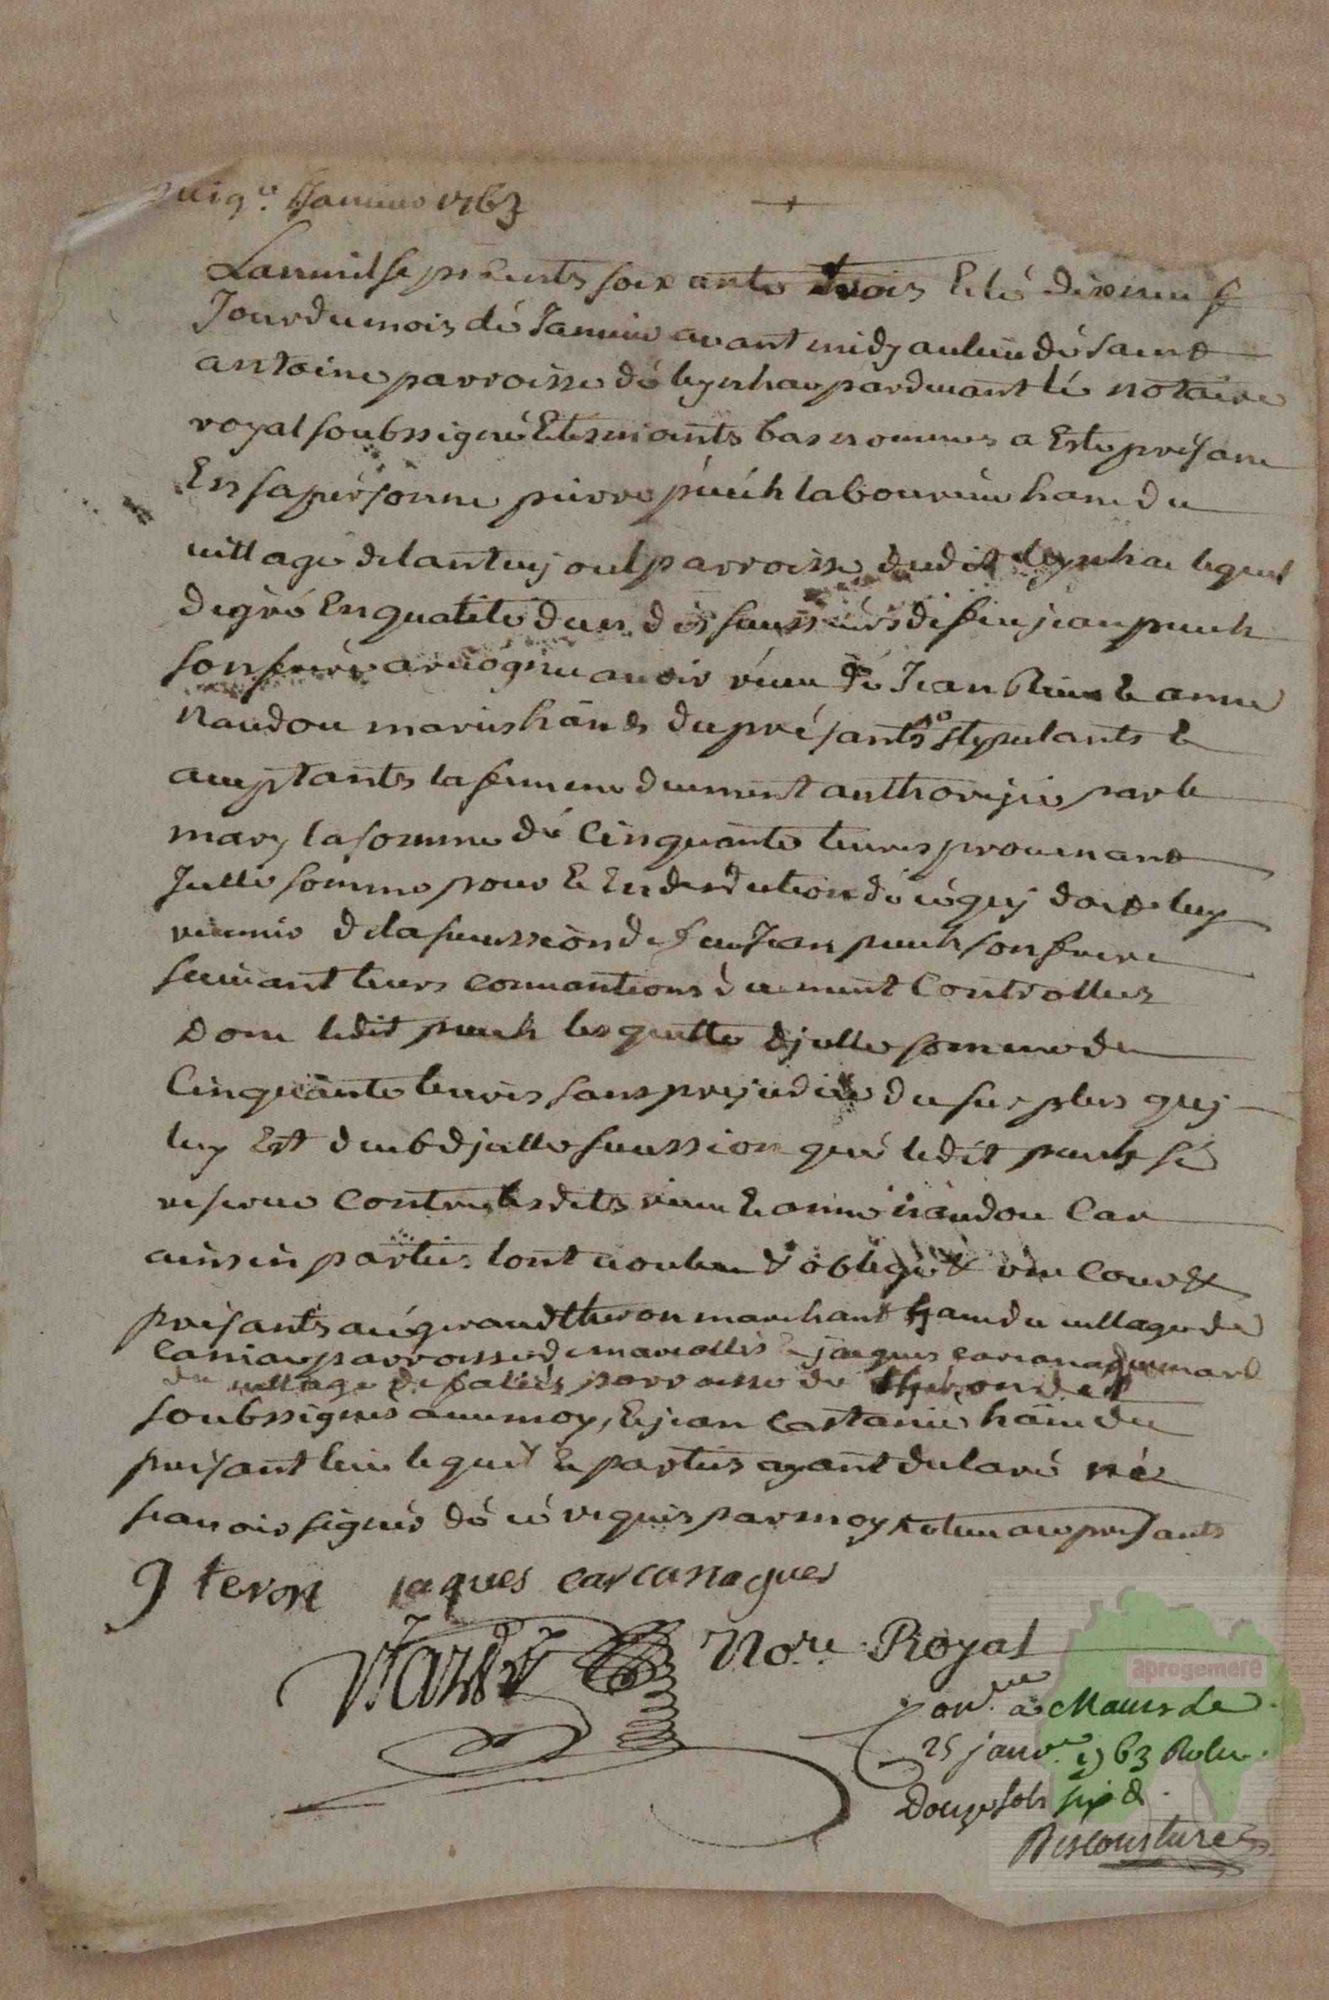 Janvier 1763
Lan mil sept cents soixante trois & lé dix neuf
Jour du mois dé Janvier avant midy au lieu dé saint
antoine parroisse dé leynhac pardevant lé notaire
royal soubssigné & tesmoints bas nommes a esté présant
En sa pérsonne pierre puéch laboureur hant du
village de lanteujoul parroisse dudit leynhac lequel
de gré En qualité dun dés suxesséurs de feu jean puech
son frére a recogneu avoir réceu dé Jean Rieu & anne
naudou mariés hants du présants lo stypulants &
aceptants la femme deument authorizée par le
mary la somme dé Cinquante livres provenant
Jcelle somme pour & En desduction dé cé quy doit luy
revenir de la suxession de feu Jean puech son frere
suivant leurs convantions deument Controllées
Dont ledit puech les quitte djcelle somme de
Cinquante livres sans prejudice du surplus quy
luy Est deub djcelle suxession qué ledit puech sé
reserve Contre lesdits rieu & anne naudou Car
ainsin parties lont voulleu & obligé & réu Cour &
présants aü géraud theron marchant hant du village de
Caniac parroisse de marcollés & jacques carcanagues marc
du village de faliés parroisse de therondel
soubssignés avec moy, & jean Castanié hant du
présant lieu lequel & parties ayant declaré né
scavoir signér dé cé requis par moy & retenu aux présants
g teron jaques carcanagues
Nore. Royal
onlle. a Maurs le
25 janvr. 1763 Recu
Douze sols six d.
Descousture